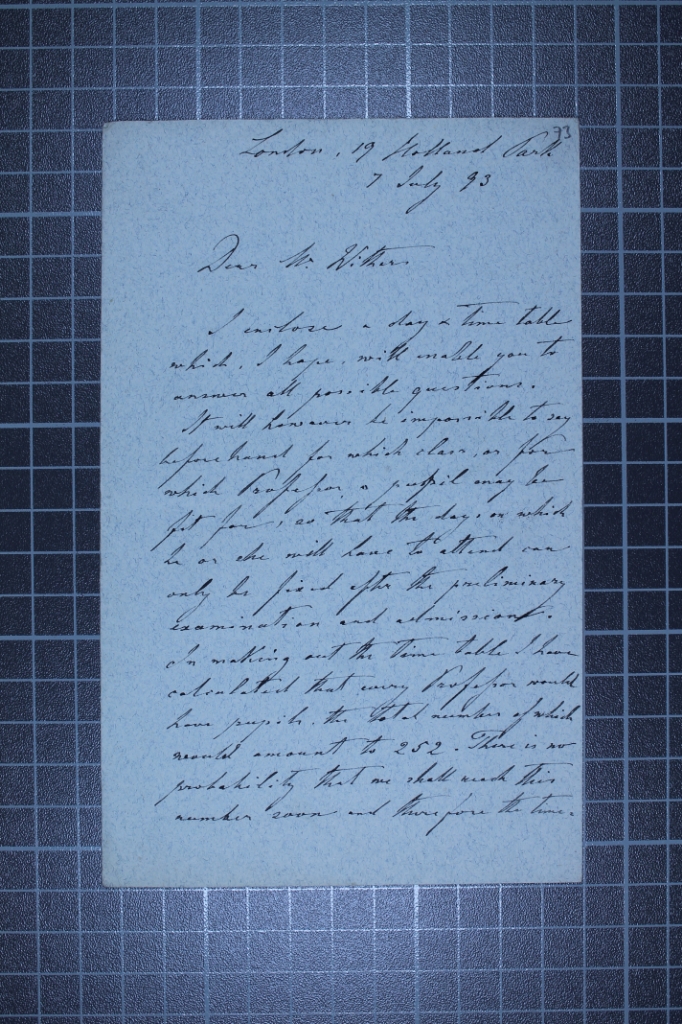 93
London, 19 Holland Park
7 July 93
Dear Mr. Withers
I enclose a day & time table
which, I hope, will enable you to
answer all possible questions.
It will however be impossible to say
beforehand for which class, or for
which Professor a pupil may be
fit for, so that the days on which
he or she will have to attend can
only be fixed after the preliminary
examination and admission.
In making out the time table I have
calculated that every Professor would
have pupils, the total number of which
would amount to 252. There is no
probability that we shall reach this
number soon and therefore the time=